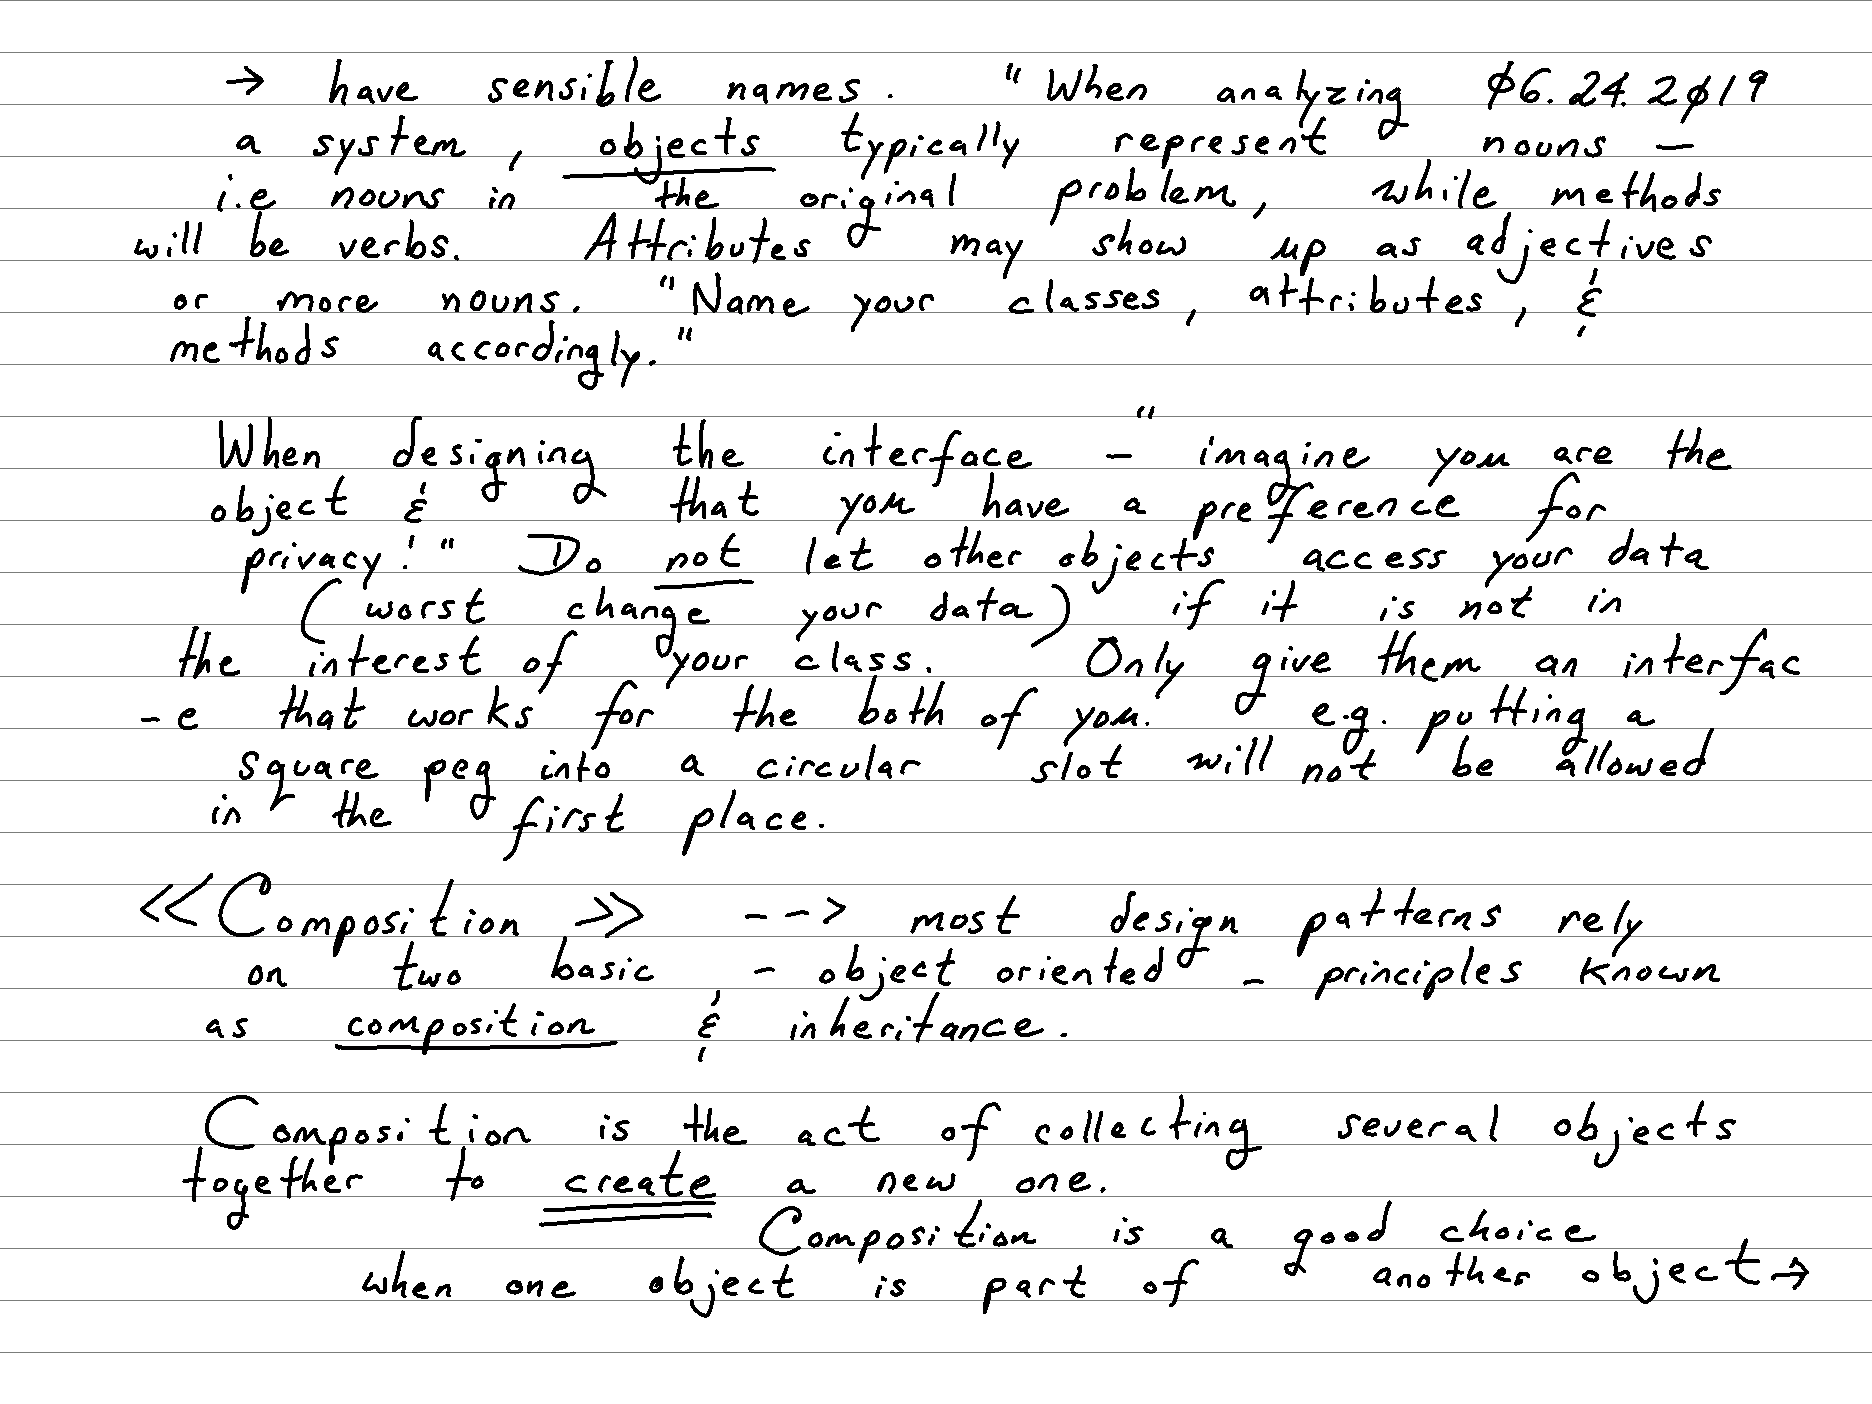 → have sensible names. "When analyzing 06.24.2019
a system, objects typically represent nouns —
i.e nouns in the original problem, while methods
will be verbs. Attributes may show up as adjectives
or more nouns. "Name your classes, attributes, &
methods accordingly."
When designing the interface - "imagine you are the
object & that you have a preference for
privacy!" Do not let other objects access your data
(worst change your data) if it is not in
the interest of your class. Only give them an interfac
-e that works for the both of you. e.g. putting a
square peg into a circular slot will not be allowed
in the first place.
<<Composition>> --> most design patterns rely
on two basic - object oriented - principles known
as composition & inheritance.
Composition is the act of collecting several objects
together to create a new one.
Composition is a good choice
when one object is part of another object→